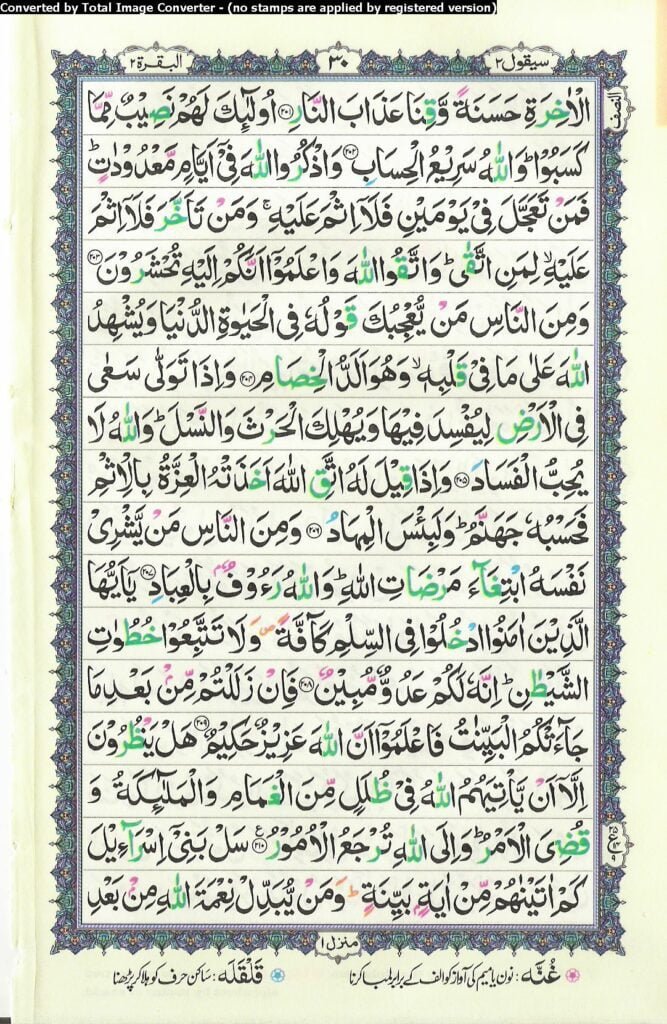 Converted by Total Image Converter - (no stamps are applied by registered version)
سيقول ٢ ٣٠ البقرة ٢
الۡاٰخِرَةِ حَسَنَةً وَّقِنَا عَذَابَ النَّارِ ﴿۲۰۱﴾ اُولٰٓئِكَ لَهُمۡ نَصِيۡبٌ مِّمَّا
النصف
كَسَبُوۡا ؕ وَاللّٰهُ سَرِيۡعُ الۡحِسَابِ ﴿۲۰۲﴾ وَاذۡكُرُوا اللّٰهَ فِىۡٓ اَيَّامٍ مَّعۡدُوۡدٰتٍ ؕ
فَمَنۡ تَعَجَّلَ فِىۡ يَوۡمَيۡنِ فَلَاۤ اِثۡمَ عَلَيۡهِ ۚ وَمَنۡ تَاَخَّرَ فَلَاۤ اِثۡمَ
عَلَيۡهِ ۙ لِمَنِ اتَّقٰى ؕ وَاتَّقُوا اللّٰهَ وَاعۡلَمُوۡٓا اَنَّكُمۡ اِلَيۡهِ تُحۡشَرُوۡنَ ﴿۲۰۳﴾
وَمِنَ النَّاسِ مَنۡ يُّعۡجِبُكَ قَوۡلُهٗ فِى الۡحَيٰوةِ الدُّنۡيَا وَيُشۡهِدُ
اللّٰهَ عَلٰى مَا فِىۡ قَلۡبِهٖ ۙ وَهُوَ اَلَدُّ الۡخِصَامِ ﴿۲۰۴﴾ وَاِذَا تَوَلّٰى سَعٰى
فِى الۡاَرۡضِ لِيُفۡسِدَ فِيۡهَا وَيُهۡلِكَ الۡحَرۡثَ وَالنَّسۡلَ ؕ وَاللّٰهُ لَا
يُحِبُّ الۡفَسَادَ ﴿۲۰۵﴾ وَاِذَا قِيۡلَ لَهُ اتَّقِ اللّٰهَ اَخَذَتۡهُ الۡعِزَّةُ بِالۡاِثۡمِ
فَحَسۡبُهٗ جَهَنَّمُ ؕ وَلَبِئۡسَ الۡمِهَادُ ﴿۲۰۶﴾ وَمِنَ النَّاسِ مَنۡ يَّشۡرِىۡ
نَفۡسَهُ ابۡتِغَآءَ مَرۡضَاتِ اللّٰهِ ؕ وَاللّٰهُ رَءُوۡفٌۢ بِالۡعِبَادِ ﴿۲۰۷﴾ يٰٓاَيُّهَا
الَّذِيۡنَ اٰمَنُوا ادۡخُلُوۡا فِى السِّلۡمِ كَآفَّةً ۪ وَلَا تَتَّبِعُوۡا خُطُوٰتِ
الشَّيۡطٰنِ ؕ اِنَّهٗ لَكُمۡ عَدُوٌّ مُّبِيۡنٌ ﴿۲۰۸﴾ فَاِنۡ زَلَلۡتُمۡ مِّنۡۢ بَعۡدِ مَا
جَآءَتۡكُمُ الۡبَيِّنٰتُ فَاعۡلَمُوۡٓا اَنَّ اللّٰهَ عَزِيۡزٌ حَكِيۡمٌ ﴿۲۰۹﴾ هَلۡ يَنۡظُرُوۡنَ
اِلَّاۤ اَنۡ يَّاۡتِيَهُمُ اللّٰهُ فِىۡ ظُلَلٍ مِّنَ الۡغَمَامِ وَالۡمَلٰٓئِكَةُ وَ
قُضِىَ الۡاَمۡرُ ؕ وَاِلَى اللّٰهِ تُرۡجَعُ الۡاُمُوۡرُ ﴿۲۱۰﴾ سَلۡ بَنِىۡٓ اِسۡرَآءِيۡلَ
كَمۡ اٰتَيۡنٰهُمۡ مِّنۡ اٰيَةٍۢ بَيِّنَةٍ ؕ وَمَنۡ يُّبَدِّلۡ نِعۡمَةَ اللّٰهِ مِنۡۢ بَعۡدِ
منزل ١
غُنَّه: نون یا میم کی آواز کو الف کے برابر لمبا کرنا قَلْقَلَه: ساکن حرف کو ہلا کر پڑھنا